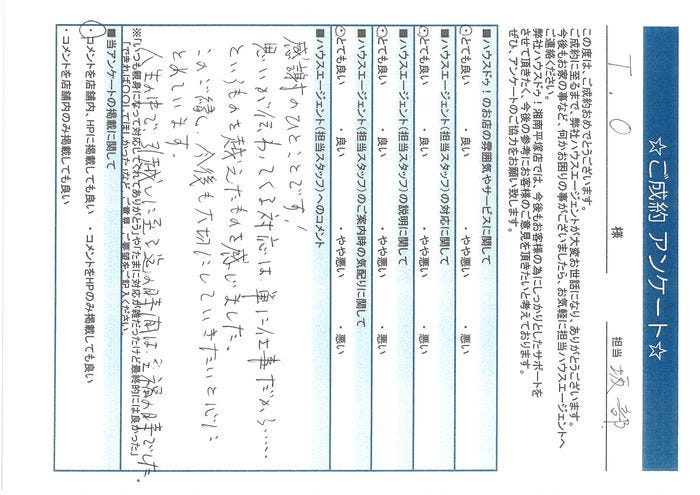 ☆ご成約 アンケート☆
T.O 様 担当 坂部
この度は、ご成約おめでとうございます。
ご成約に至るまで、弊社ハウスエージェントが大変お世話になり、ありがとうございます。
今後もお家の事など、何かお困りの事がございましたら、お気軽に担当ハウスエージェントへ
ご連絡ください。
弊社ハウスドゥ！湘南平塚店では、今後もお客様の為にしっかりとしたサポートを
させて頂きたく、今後の参考にお客様のご意見を頂きたいと考えております。
ぜひ、アンケートのご協力をお願い致します。
■ハウスドゥ！のお店の雰囲気やサービスに関して
・とても良い ・良い ・やや悪い ・悪い
■ハウスエージェント(担当スタッフ)の対応に関して
・とても良い ・良い ・やや悪い ・悪い
■ハウスエージェント(担当スタッフ)の説明に関して
・とても良い ・良い ・やや悪い ・悪い
■ハウスエージェント(担当スタッフ)のご案内時の気配りに関して
・とても良い ・良い ・やや悪い ・悪い
■ハウスエージェント(担当スタッフ)へのコメント
感謝のひとことです！
思いが伝わってくる対応は単に仕事だから……
というものを越えたものを感じました。
このご縁、今後も大切にしていきたいと心に
とめています。
人生の中で引越しに至る迄の時間は、至福の時でした。
※「いつも親身になって対応してくれてありがとう」や「たまに対応が雑だったけど最終的には良かった」
「できれば○○してほしかった」など、ご意見、ご要望をご記入ください。
■当アンケートの掲載に関して
・コメントを店舗内、HPに掲載しても良い ・コメントをHPのみ掲載しても良い
・コメントを店舗内のみ掲載しても良い